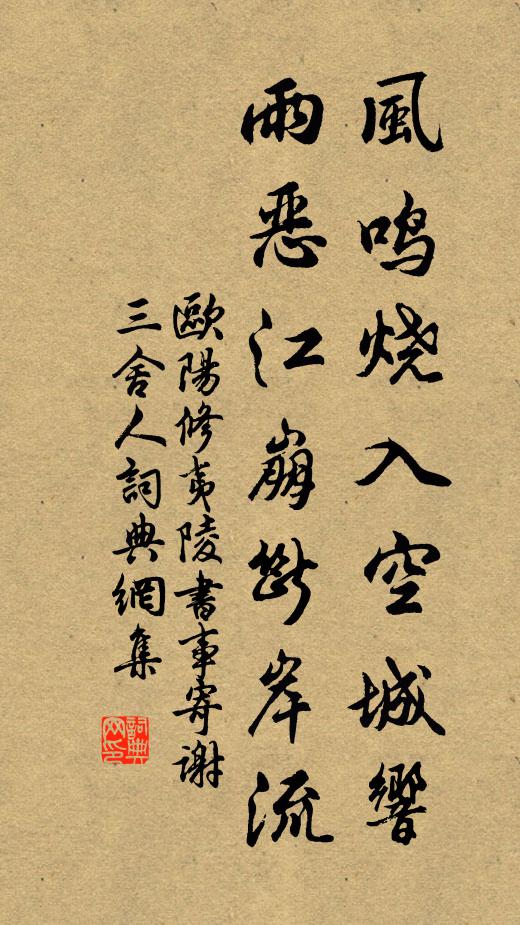 風鳴烧入空城響
雨惡江崩斷岸流
歐陽修夷陵書事寄謝
三舍人詞典網集
詞典
网印